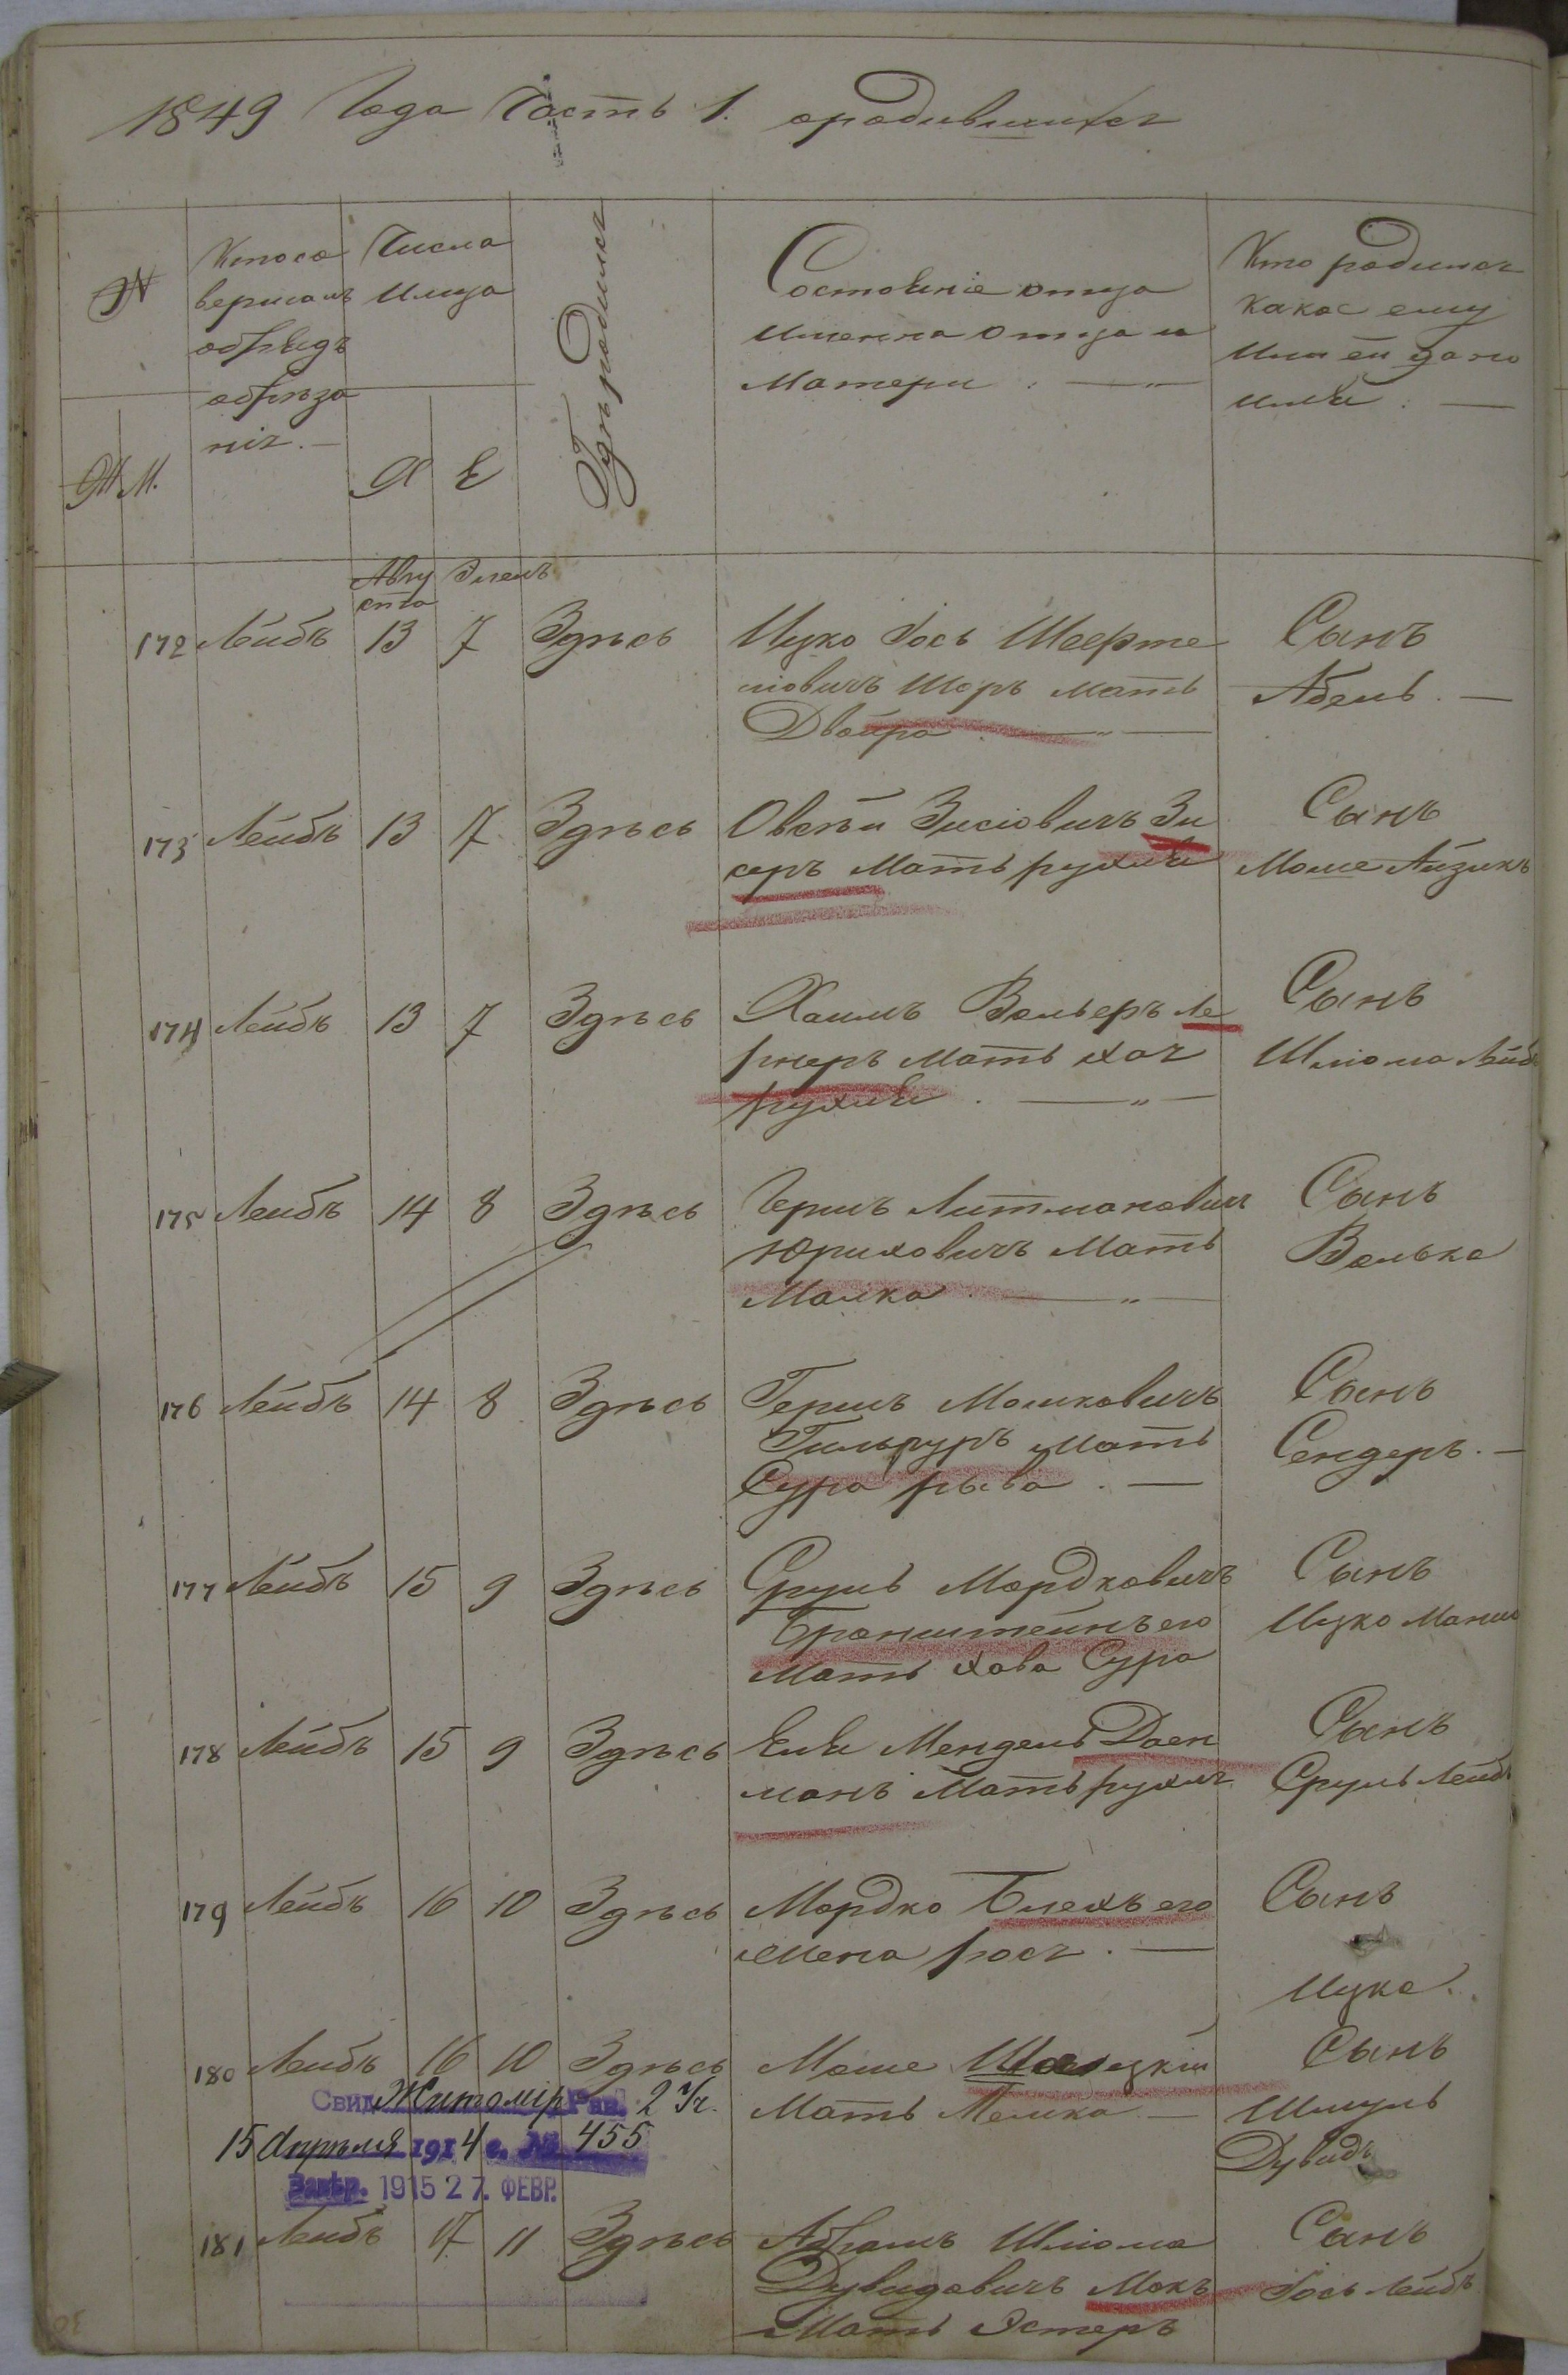 1849 Года Часть 1. ородившихся
№
Ктосо
вершалъ
обрѣдъ
обрѣза
нія. —
Числа
Илица
Гдѣ родился
Состояніе отца
Именна отца и
Матери . — „
Кто родился
какое ему
Или ей дано
имя . —
М.
Х Е
Авгу
ста
Элемъ
172 Лейбъ 13 7 Здѣсь Ицко Іось
Шоръ Мать
Двойра . — „ —
Сынъ
Абель . —
173 Лейбъ 13 7 Здѣсь Овсѣй Зисіовичъ Зи
серъ Мать рухля
Сынъ
Моше Айзикъ
174 Лейбъ 13 7 Здѣсь Хаимъ Вольеръ Ле
рнеръ Мать хая
рухля . — „ —
Сынъ
Шліома Лейб
175 Лейбъ 14 8 Здѣсь Гершъ Литмановичъ
Юриховичъ Мать
Малка . — „ —
Сынъ
Волько
176 Лейбъ 14 8 Здѣсь Гершъ Мошковичъ
Мать
Сура рыва . —
Сынъ
Сендеръ . —
177 Лейбъ 15 9 Здѣсь Сруль Мордковичъ
Бронштейнъ его
Мать хава Сура
Сынъ
Ицко Маниш
178 Лейбъ 15 9 Здѣсь Еля Мендель Даен
манъ Мать рухля
Сынъ
Сруль Лейбъ
179 Лейбъ 16 10 Здѣсь Мордко Блехъ его
жена рося . —
Сынъ
Ицко .
180 Лейбъ 16 10 Здѣсь Моше
Мать Малка —
Сынъ
Шмуль
Дувидъ
Свид Житомір Рав. 2 Уч.
15 Апрѣля 1914 г. № 455
Завѣр. 1915 27. ФЕВР.
181 Лейбъ 17 11 Здѣсь Абрамъ Шліома
Дувидовичъ Мокъ
Мать Эстеръ
Сынъ
Іось Лейбъ